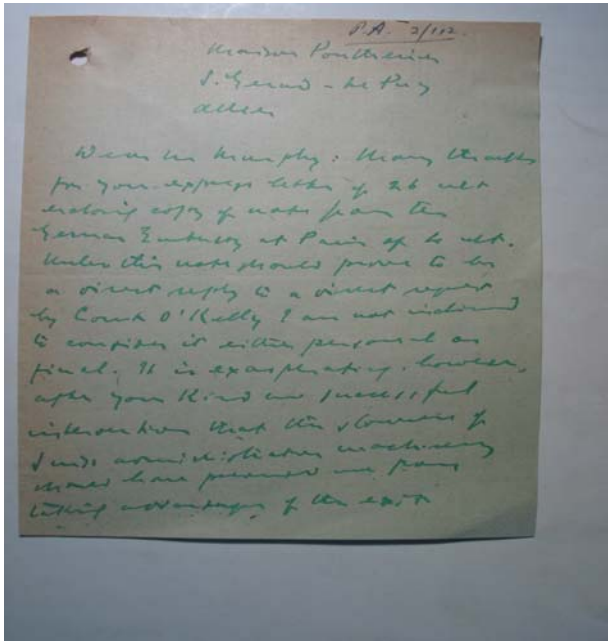 P.A. 2/112.
Maison Ponthenier
S. Gerand-le Puy
Allier
Dear Mr Murphy: Many thanks
for your express letter of 26 ult
enclosing copy of note from the
German Embassy at Paris of ult.
Unless this note should prove to be
a direct reply to a direct request
by Count O'Kelly I am not inclined
to consider it either personal or
final. It is exasperating, however,
after your kind and successful
intervention that the slowness of
Swiss administrative machinery
should have prevented me from
taking advantage of the exit